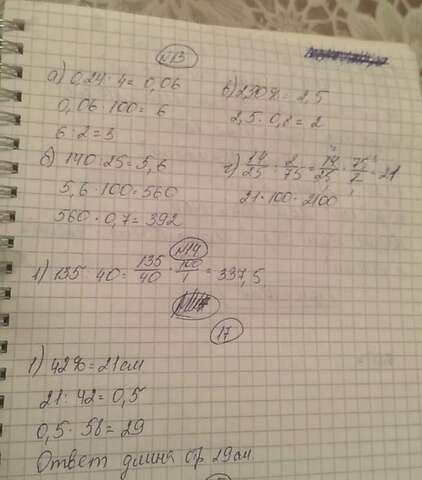 N13
а) 0,24 : 4 = 0,06
0,06 · 100 = 6
6 : 2 = 3
б) 140 : 25 = 5,6
5,6 · 100 = 560
560 · 0,7 = 392
в) 250% = 2,5
2,5 · 0,8 = 2
г) 14/25 : 2/75 = 14/25 · 75/2 = 21
21 · 100 = 2100
N14
1) 135 : 40 = 135/40 · 100/1 = 337,5
17
1) 42% = 21 см
21 : 42 = 0,5
0,5 · 58 = 29
Ответ длина отр 29 см